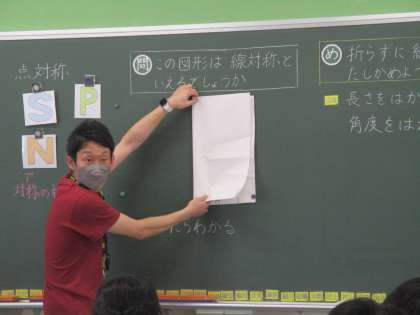 点対称
S
P
N
対称の
問 この図形は 線対称と
いえるでしょうか
らわかる
め 折らずに
たしかめよ
長さをはか
角度をは